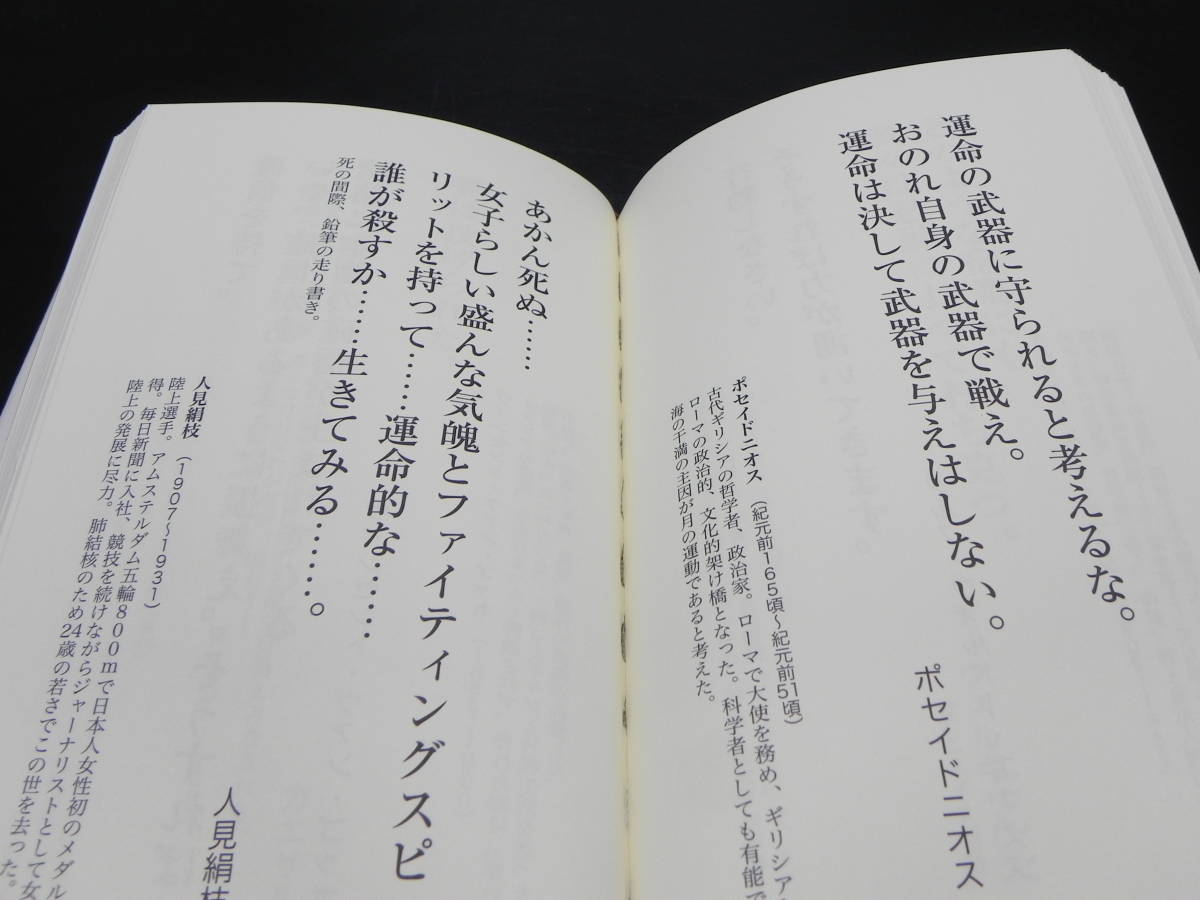 運命の武器に守られると考えるな。
おのれ自身の武器で戦え。
運命は決して武器を与えはしない。
ポセイドニオス
ポセイドニオス（紀元前165頃〜紀元前51頃）
古代ギリシアの哲学者、政治家。ローマで大使を務め、ギリシア
ローマの政治的、文化的架け橋となった。科学者としても有能で
海の干満の主因が月の運動であると考えた。
あかん死ぬ……
女子らしい盛んな気魄とファイティングスピ
リットを持って……運命的な……
誰が殺すか……生きてみる……。
死の間際、鉛筆の走り書き。
人見絹枝
人見絹枝（1907〜1931）
陸上選手。アムステルダム五輪800mで日本人女性初のメダル
得。毎日新聞に入社、競技を続けながらジャーナリストとして女
陸上の発展に尽力。肺結核のため24歳の若さでこの世を去った。